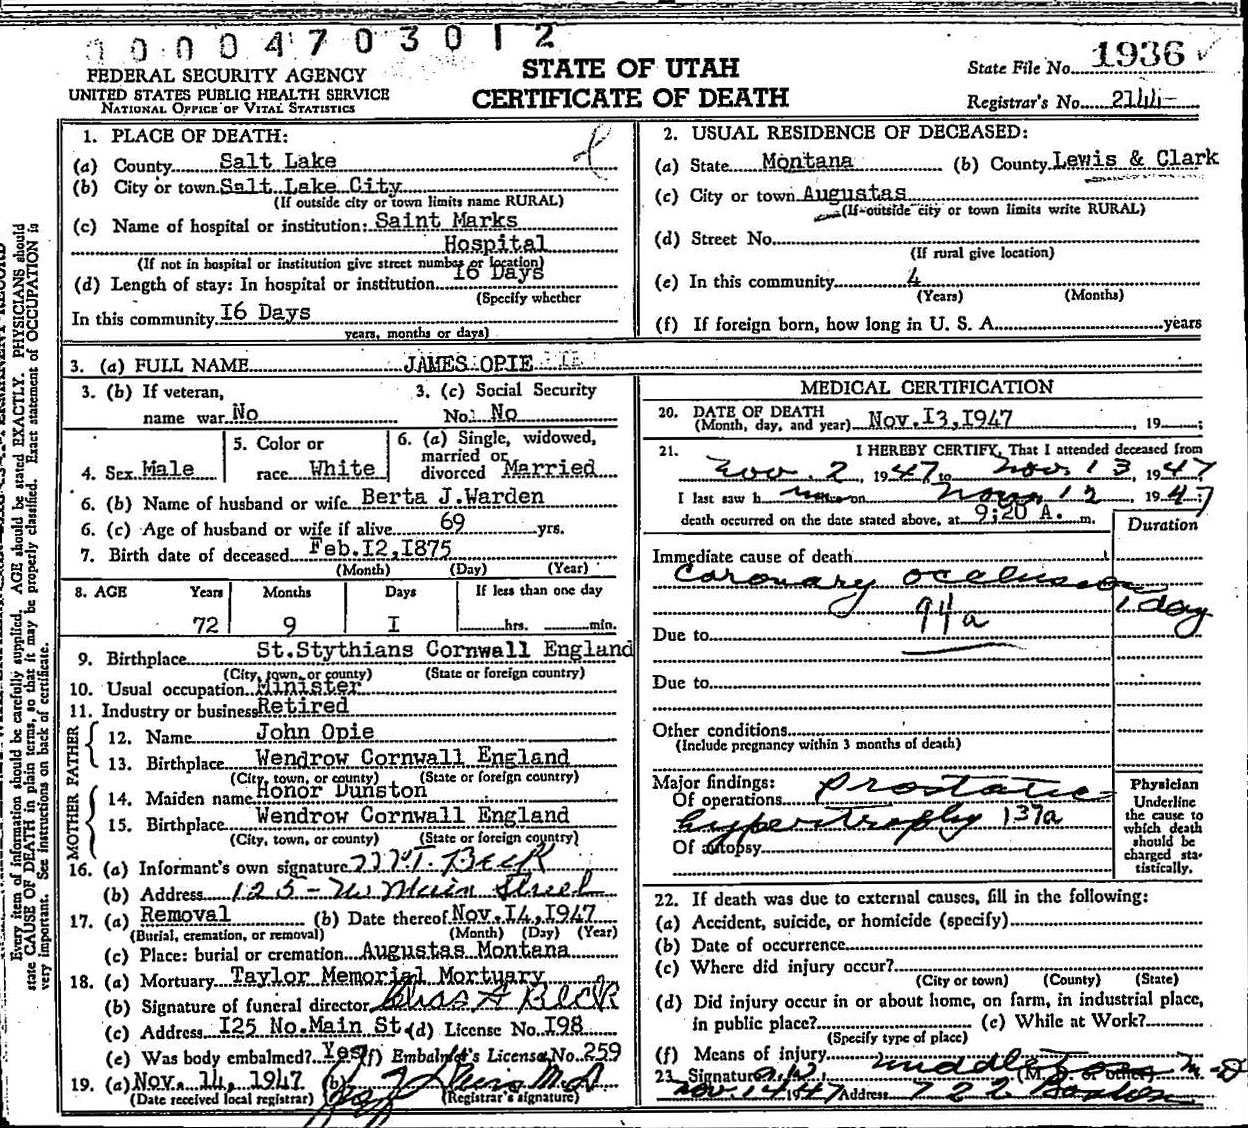 0 0 0 0 4 7 0 3 0 1 2
FEDERAL SECURITY AGENCY
UNITED STATES PUBLIC HEALTH SERVICE
NATIONAL OFFICE OF VITAL STATISTICS
STATE OF UTAH
CERTIFICATE OF DEATH
State File No. 1936
Registrar's No. 2144
1. PLACE OF DEATH:
(a) County Salt Lake
(b) City or town Salt Lake City
(If outside city or town limits name RURAL)
(c) Name of hospital or institution: Saint Marks
Hospital
(If not in hospital or institution give street number or location)
(d) Length of stay: In hospital or institution 16 Days
(Specify whether
In this community I6 Days
years, months or days)
2. USUAL RESIDENCE OF DECEASED:
(a) State Montana (b) County Lewis & Clark
(c) City or town Augustas
(If outside city or town limits write RURAL)
(d) Street No.
(If rural give location)
(e) In this community 4
(Years) (Months)
(f) If foreign born, how long in U. S. A. years
3. (a) FULL NAME JAMES OPIE
3. (b) If veteran,
name war No
3. (c) Social Security
No. No
4. Sex Male
5. Color or
race White
6. (a) Single, widowed,
married or
divorced Married
6. (b) Name of husband or wife Berta J.Warden
6. (c) Age of husband or wife if alive 69 yrs.
7. Birth date of deceased Feb.I2,I875
(Month) (Day) (Year)
8. AGE Years Months Days If less than one day
72 9 I hrs. min.
9. Birthplace St.Stythians Cornwall England
(City, town, or county) (State or foreign country)
10. Usual occupation Minister
11. Industry or business Retired
FATHER
12. Name John Opie
13. Birthplace Wendrow Cornwall England
(City, town, or county) (State or foreign country)
MOTHER
14. Maiden name Honor Dunston
15. Birthplace Wendrow Cornwall England
(City, town, or county) (State or foreign country)
16. (a) Informant's own signature M.T. Beck
(b) Address 125 - N Main Street
17. (a) Removal (b) Date thereof Nov.I4,I947
(Burial, cremation, or removal) (Month) (Day) (Year)
(c) Place: burial or cremation Augustas Montana
18. (a) Mortuary Taylor Memorial Mortuary
(b) Signature of funeral director Chas A Beck
(c) Address I25 No.Main St. (d) License No. I98
(e) Was body embalmed? Yes (f) Embalmer's License No. 259
19. (a) Nov. 14, 1947 (b) M D
(Date received local registrar) (Registrar's signature)
MEDICAL CERTIFICATION
20. DATE OF DEATH
(Month, day, and year) Nov.I3,I947 , 19 ;
21. I HEREBY CERTIFY, That I attended deceased from
Nov. 2, 1947 to Nov 13 1947
I last saw h im on Nov 12, 1947;
death occurred on the date stated above, at 9:20 A. m.
Duration
Immediate cause of death
Coronary occlusion
94a 1 day
Due to
Due to
Other conditions
(Include pregnancy within 3 months of death)
Major findings:
Of operations Prostatic
hypertrophy 137a
Of autopsy
Physician
Underline
the cause to
which death
should be
charged sta-
tistically.
22. If death was due to external causes, fill in the following:
(a) Accident, suicide, or homicide (specify)
(b) Date of occurrence
(c) Where did injury occur?
(City or town) (County) (State)
(d) Did injury occur in or about home, on farm, in industrial place,
in public place? (e) While at Work?
(Specify type of place)
(f) Means of injury
23. Signature Middleton M D
(M. D. or other)
Nov. 14 1947 Address 722 Boston
Every item of information should be carefully supplied. AGE should be stated EXACTLY. PHYSICIANS should
state CAUSE OF DEATH in plain terms, so that it may be properly classified. Exact statement of OCCUPATION is
very important. See instructions on back of certificate.